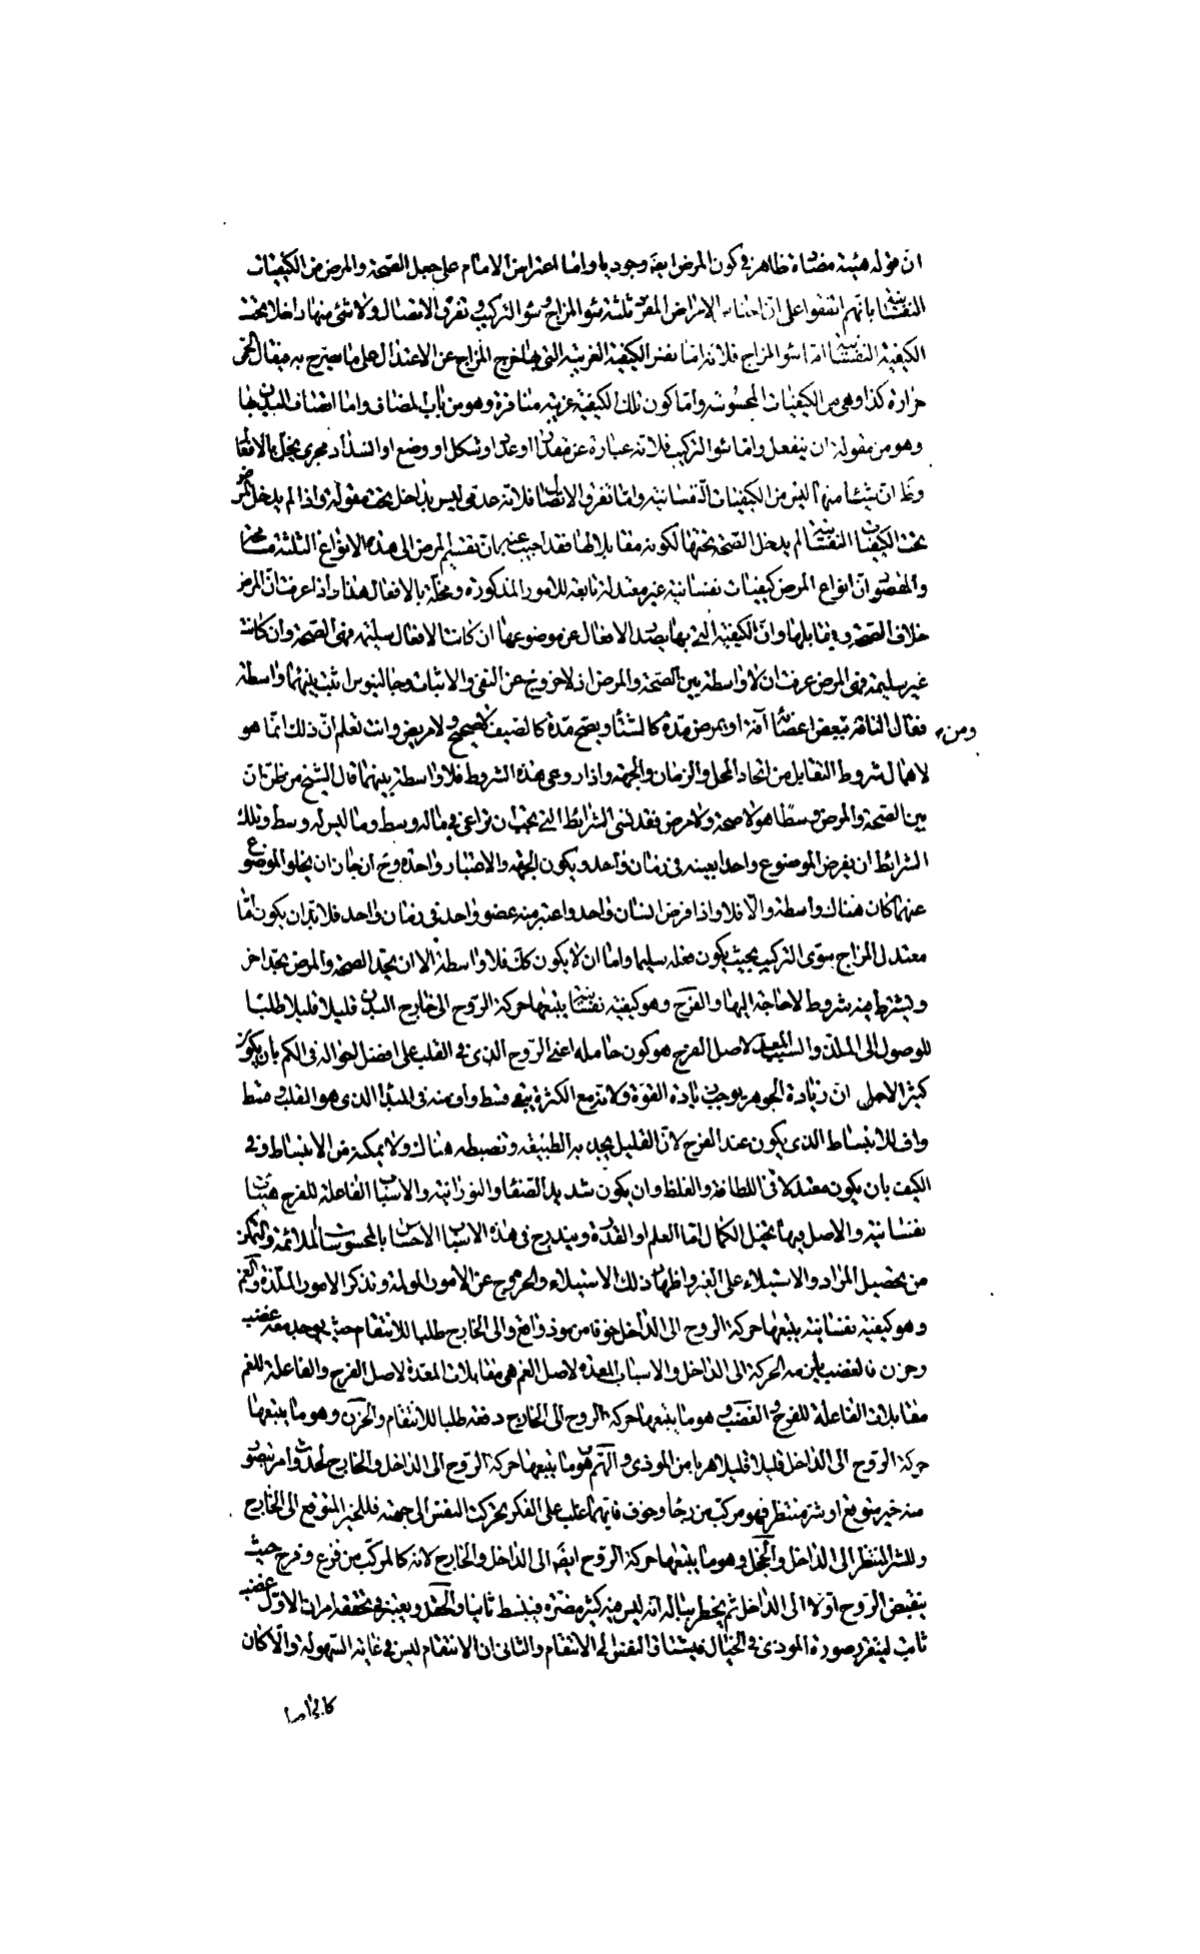 ان قوله هيئة مضادة ظاهر في كون المرض ايضا وجوديا واما اعتراض الامام على جعل الصحة والمرض من الكيفيات
النفسانية بانهم اتفقوا على ان اجناس الامراض المفردة ثلثة سوء المزاج وسوء التركيب وتفرق الاتصال ولا شئ منها داخلا تحت
الكيفية النفسانية اما سوء المزاج فلانه اما نفس الكيفية الغريبة التي بها خرج المزاج عن الاعتدال على ما يصرح به حيث يقال الحمى
حرارة كذا وهي من الكيفيات المحسوسة واما كون تلك الكيفية غريبة منافرة وهو من باب المضاف واما اتصاف البدن بها
وهو من مقولة ان ينفعل واما سوء التركيب فلانه عبارة عن مقدار او عدد او شكل او وضع او انسداد مجرى يخل بالافعال
وظ ان شيئا منها ليس من الكيفيات النفسانية واما تفرق الاتصال فلانه عدمي ليس بداخل تحت مقولة واذا لم يدخل المرض
تحت الكيفيات النفسانية لم يدخل الصحة تحتها لكونه مقابلا لها فقد اجيب عنه بان تقسيم المرض الى هذه الانواع الثلثة مسامحة
والمقصود ان انواع المرض كيفيات نفسانية غير معتدلة تابعة للامور المذكورة ومخلة بالافعال هذا واذا عرفت ان المرض
خلاف الصحة ويقابلها وان الكيفية التي بها يصدر الافعال عن موضوعها ان كانت الافعال سليمة فهي الصحة وان كانت
غير سليمة فهي المرض عرفت ان لا واسطة بين الصحة والمرض اذ لا خروج عن النفي والاثبات وجالينوس اثبت بينهما واسطة
فقال الناقه ومن ببعض اعضائه آفة او يمرض مدة كالشتاء ويصح مدة كالصيف لا صحيح ولا مريض وانت تعلم ان ذلك انما هو
لاهمال شروط التقابل من اتحاد المحل والزمان والجهة واذا روعي هذه الشروط فلا واسطة بينهما قال الشيخ من ظن ان
بين الصحة والمرض وسطا هو لا صحة ولا مرض فقد نسي الشرائط التي يجب ان تراعى في ما له وسط وما ليس له وسط وتلك
الشرائط ان يفرض الموضوع واحدا بعينه في زمان واحد ويكون الجهة والاعتبار واحدة وح ان جاز ان يخلو الموضوع
عنهما كان هناك واسطة والا فلا واذا فرض انسان واحد واعتبر منه عضو واحد في زمان واحد فلا بد ان يكون اما
معتدل المزاج سوى التركيب بحيث يكون فعله سليما واما ان لا يكون كك فلا واسطة الا ان يحد الصحة والمرض بحد اخر
ويشترط فيه شروط لا حاجة اليها والفرح وهو كيفية نفسانية يتبعها حركة الروح الى خارج البدن قليلا قليلا طلبا
للوصول الى الملذ والسبب المعد لاصل الفرح هو كون حامله اعني الروح الذي في القلب على افضل احواله في الكم بان يكون
كثير لاجل ان زيادة الجوهر يوجب زيادة القوة ولانه مع الكثرة يبقى قسط واف منه في المبدأ الذي هو القلب وقسط
واف للانبساط الذي يكون عند الفرح لان القليل يجذبه الطبيعة وتضبطه هناك ولا يمكنه من الانبساط وفي
الكيف بان يكون معتدلا في اللطافة والغلظ وان يكون شديد الصفاء والنورانية والاسباب الفاعلة للفرح هيئات
نفسانية والاصل فيها تخيل الكمال اما العلم او القدرة ويندرج في هذه الاسباب الاحساس بالمحسوسات الملائمة والتمكن
من تحصيل المراد والاستيلاء على الغير واظهار ذلك الاستيلاء والخروج عن الامور المولمة وتذكر الامور الملذة والغم
وهو كيفية نفسانية يتبعها حركة الروح الى الداخل خوفا من موذ واقع والى الخارج طلبا للانتقام حيث يوجد معه غضب
وحزن فالغضب يلزمه الحركة الى الداخل والاسباب المعدة لاصل الغم هي مقابلات المعدة لاصل الفرح والفاعلة للغم
مقابلات الفاعلة للفرح والغضب وهو ما يتبعها حركة الروح الى الخارج دفعة طلبا للانتقام والحزن وهو ما يتبعها
حركة الروح الى الداخل قليلا قليلا هربا من الموذي والهم هو ما يتبعها حركة الروح الى الداخل والخارج لحدوث امر يتصور
منه خير متوقع او شر منتظر فهو مركب من رجاء وخوف فايهما غلب على الفكر تحركت النفس الى جهته فللخير المتوقع الى الخارج
وللشر المنتظر الى الداخل والخجل وهو ما يتبعها حركة الروح ايضا الى الداخل والخارج لانه كالمركب من فزع وفرح حيث
ينقبض الروح اولا الى الداخل ثم يخطر بباله انه ليس فيه كثير مضرة فينبسط ثانيا والحقد ويعتبر في تحققه امران الاول غضب
ثابت ليتقرر صورة الموذي في الخيال فيشتاق النفس الى الانتقام والثاني ان الانتقام ليس في غاية السهولة والا كان